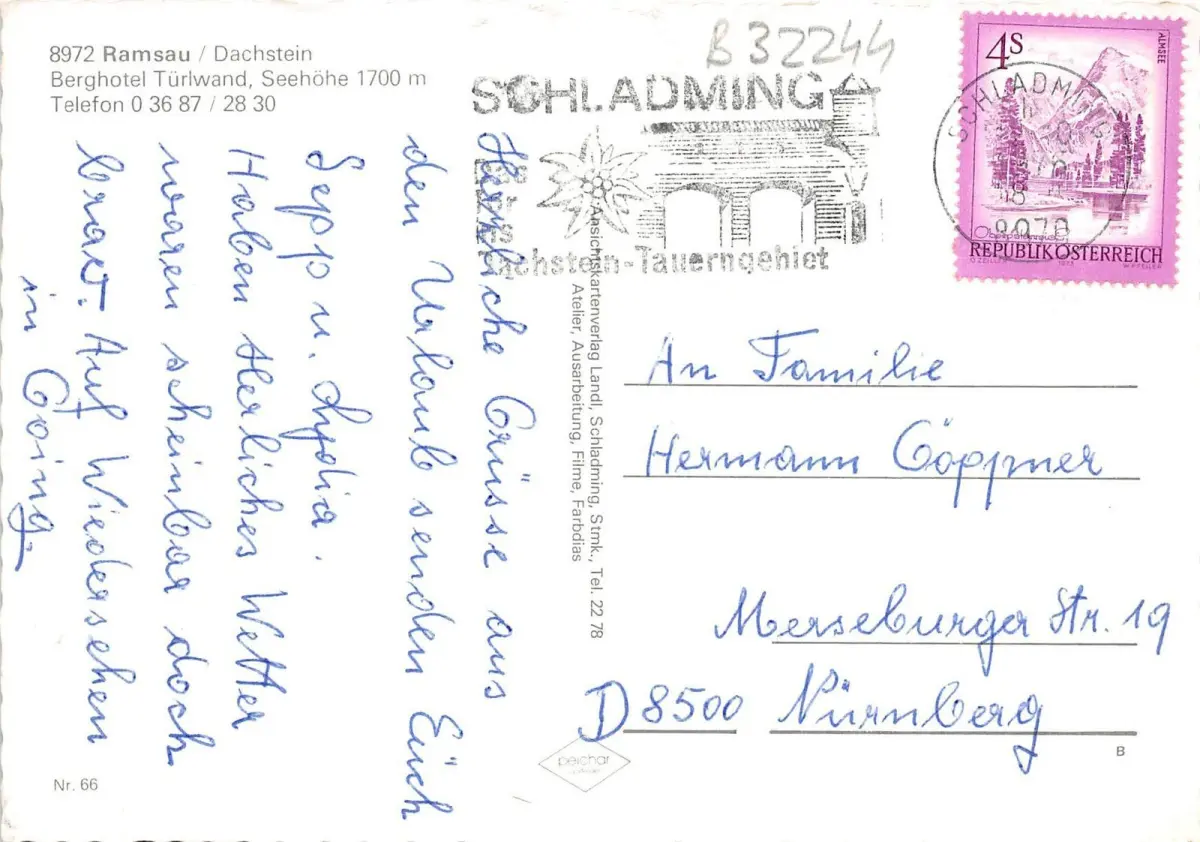 8972 Ramsau / Dachstein
Berghotel Türlwand, Seehöhe 1700 m
Telefon 0 36 87 / 28 30
B 32244
SCHLADMING
Dachstein-Tauerngebiet
4S
ALMSEE
REPUBLIK ÖSTERREICH
SCHLADMING
Herzliche Grüsse aus
den Urlaub senden Euch
Sepp u. Lydia.
Haben Herliches Wetter
waren scheinbar doch
brav. Auf Wiedersehen
in Going.
Ansichtskartenverlag Landl, Schladming, Stmk., Tel. 22 78
Atelier, Ausarbeitung, Filme, Farbdias
An Familie
Hermann Göppner
Merseburger Str. 19
D 8500 Nürnberg
peichar
B
Nr. 66